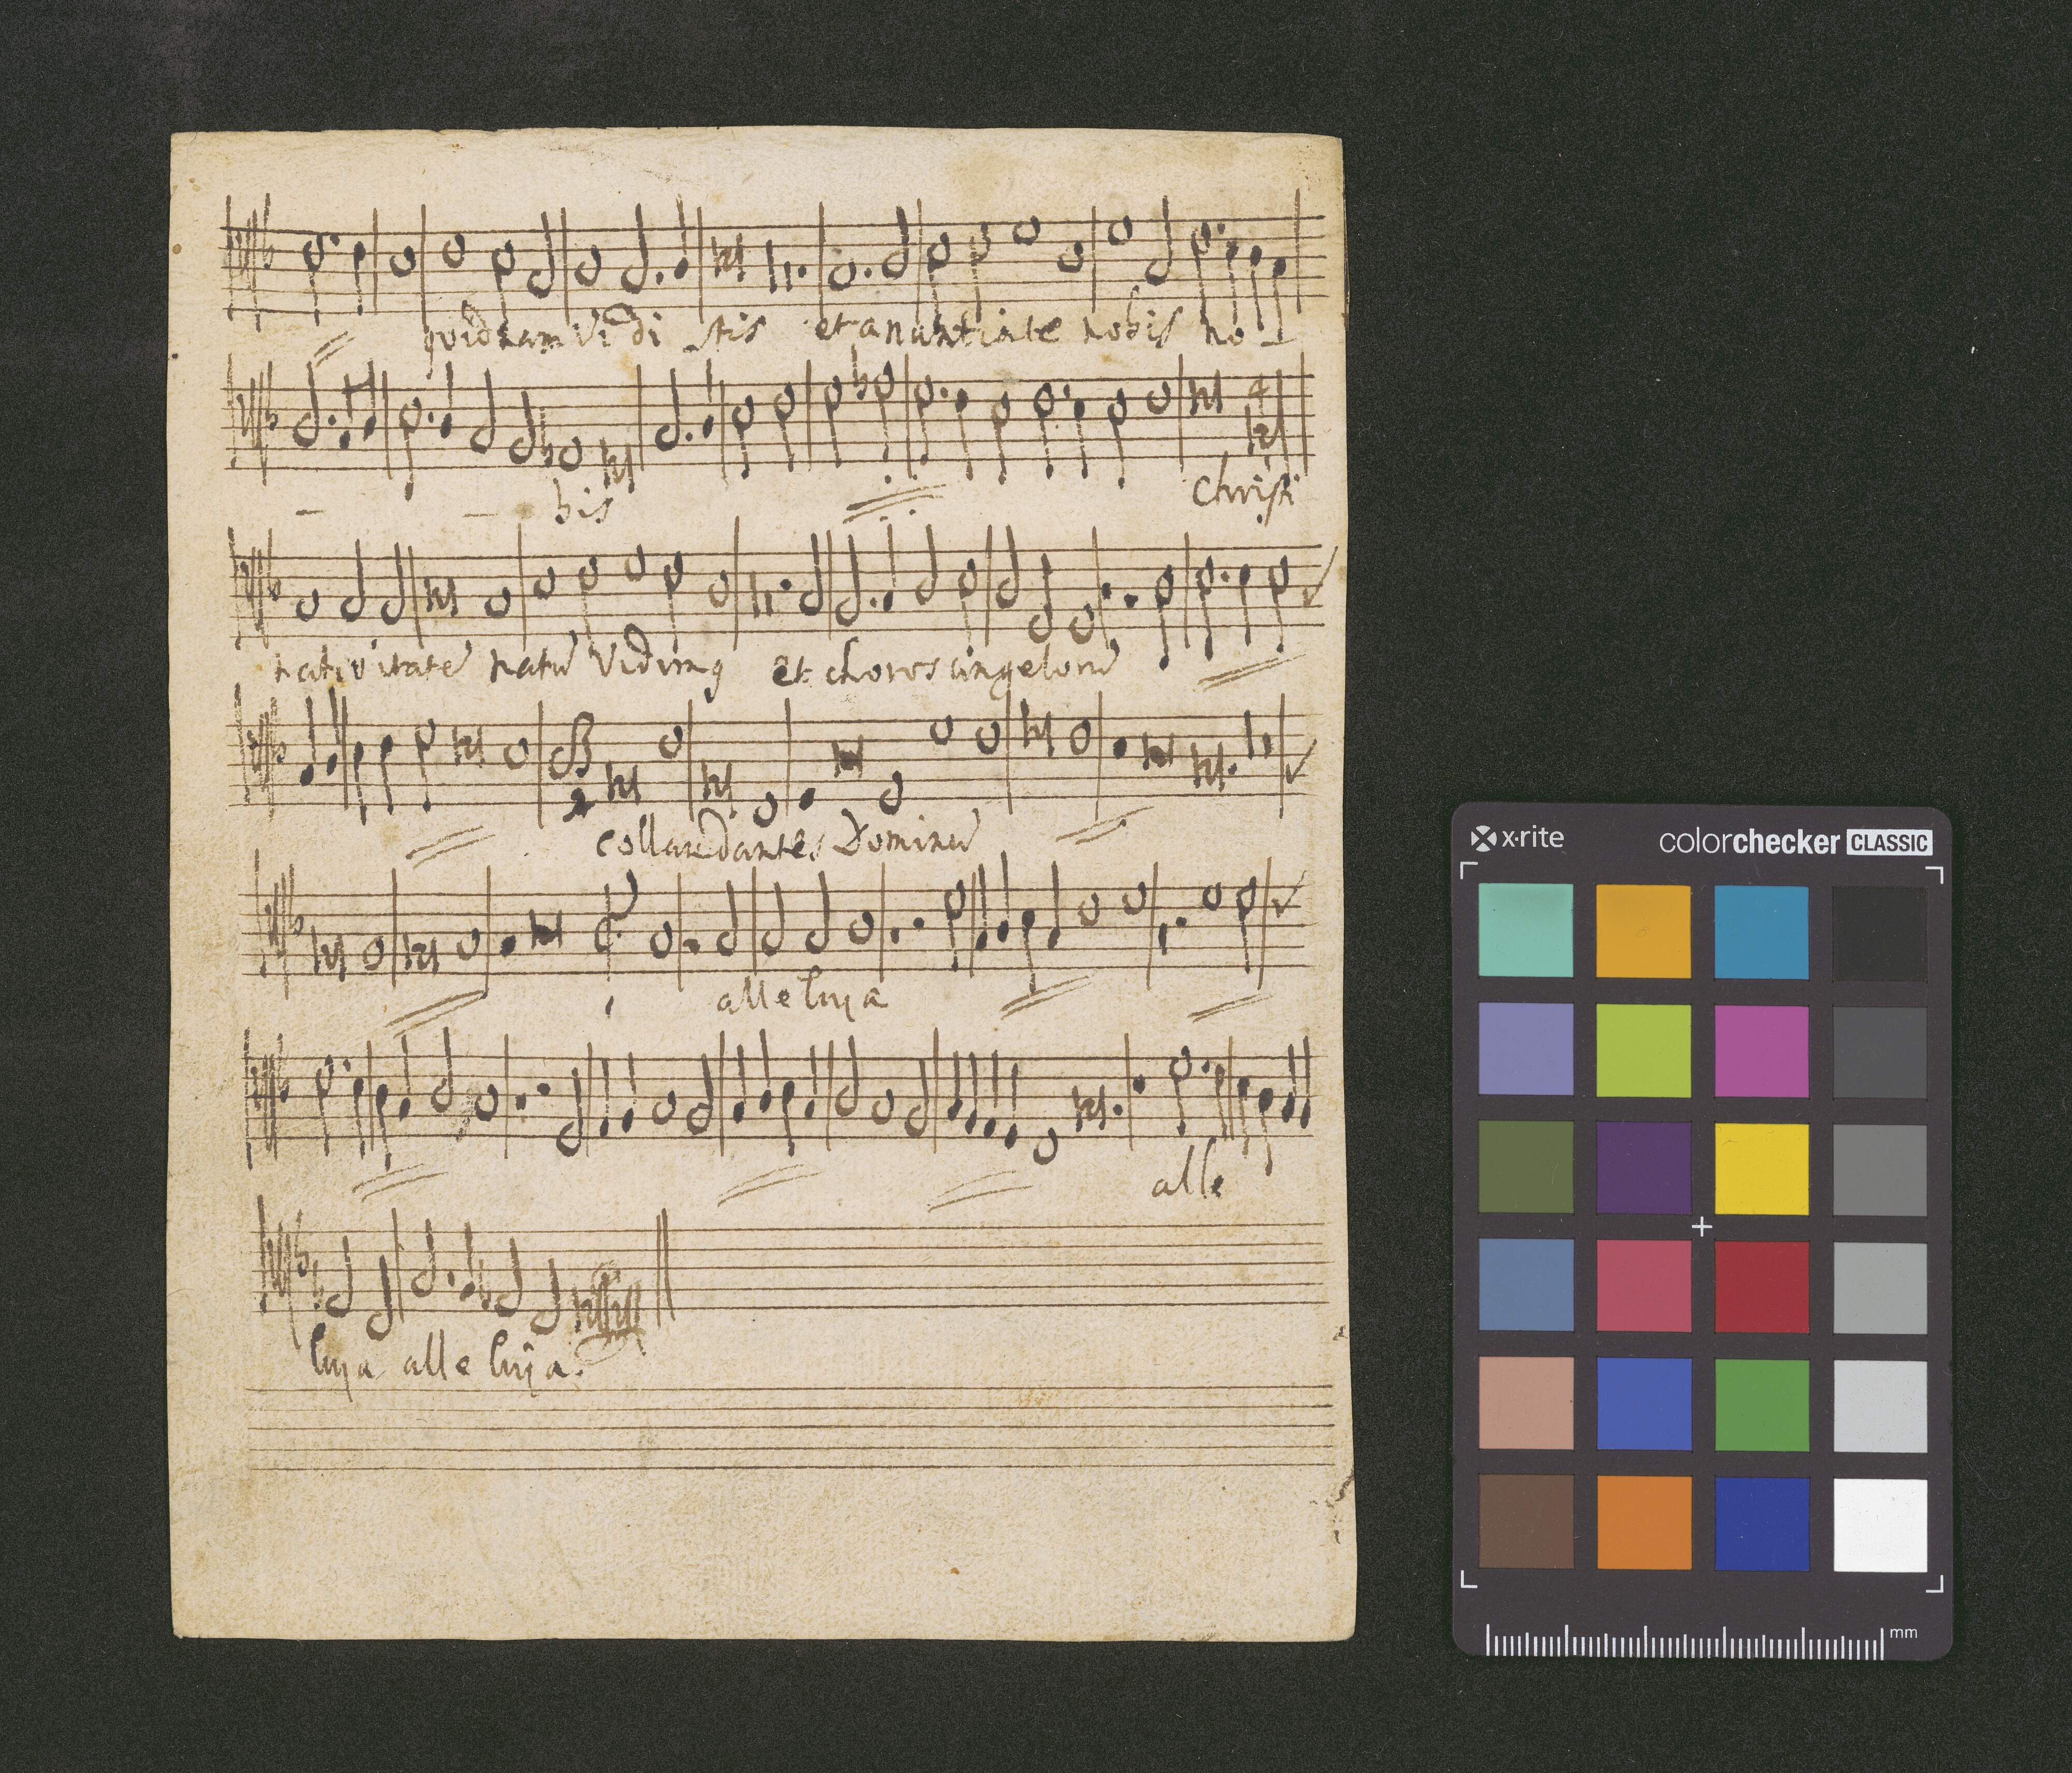 quidnam vi di stis et anuntiate nobis no _
_ _ bis Christi
nativitate natu vidimg et choros angeloru
collaudantes Dominu
alleluya
alle
luya alleluja.
x·rite colorchecker CLASSIC
mm